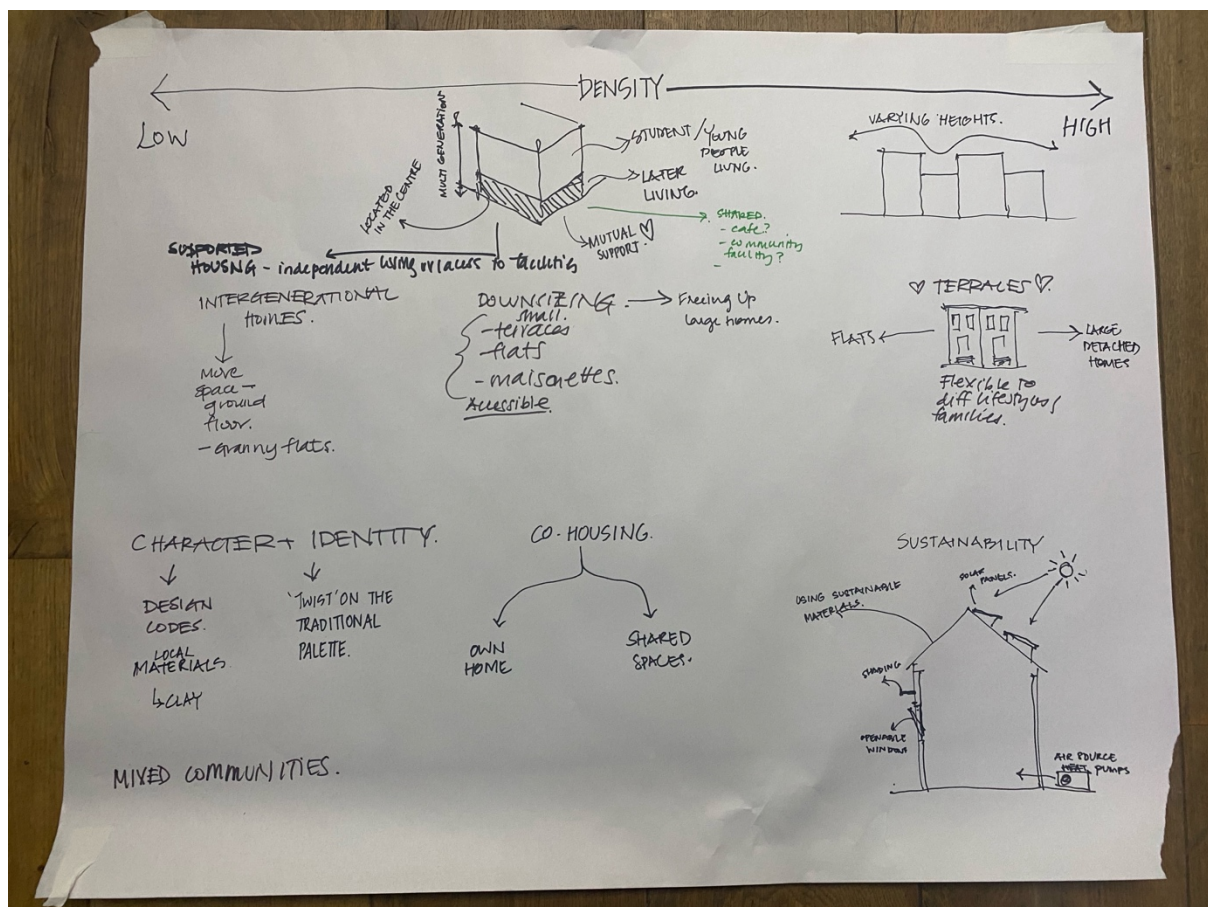 DENSITY
LOW
HIGH
MULTI GENERATION
LOCATED
IN THE CENTRE
STUDENT/YOUNG
PEOPLE
LIVING.
LATER
LIVING.
MUTUAL
SUPPORT.
SHARED.
- cafe?
- community
facility?
-
VARYING HEIGHTS.
SUPPORTED
HOUSING - independent living w/ access to facilities
INTERGENERATIONAL
HOMES.
More
space -
ground
floor.
- Granny flats.
DOWNSIZING
small.
- terraces
- flats
- maisonettes.
Accessible.
Freeing up
large homes.
♡ TERRACES ♡.
FLATS
LARGE
DETACHED
HOMES
Flexible to
diff lifestyles/
families.
CHARACTER + IDENTITY.
DESIGN
CODES.
LOCAL
MATERIALS.
↳ CLAY
'TWIST' ON THE
TRADITIONAL
PALETTE.
CO-HOUSING.
OWN
HOME
SHARED
SPACES.
SUSTAINABILITY
SOLAR
PANELS.
USING SUSTAINABLE
MATERIALS.
SHADING
OPENABLE
WINDOW
AIR SOURCE
HEAT PUMPS
MIXED COMMUNITIES.